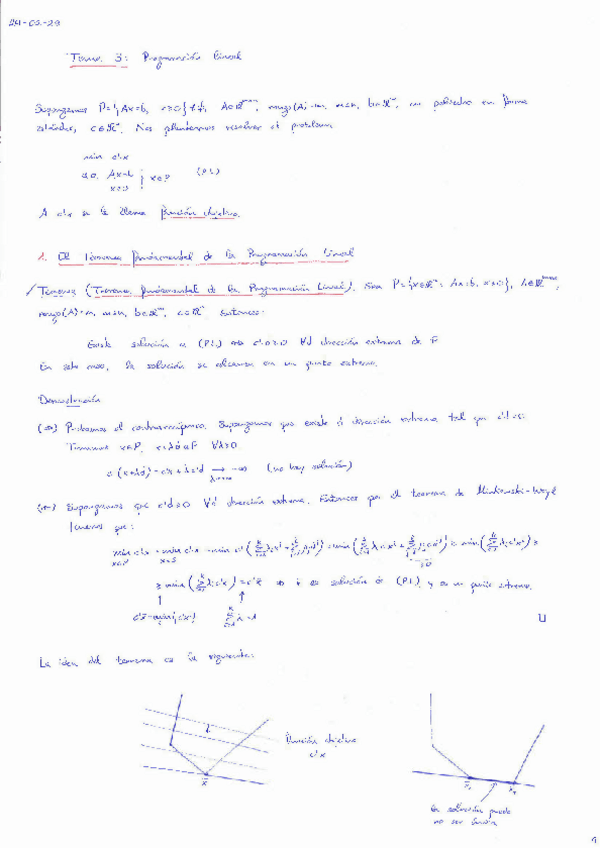 Tema 3: Programación lineal
Supongamos P={Ax=b, x≥0}≠∅, A∈ℝᵐˣⁿ, rango(A)=m, m≤n, b∈ℝᵐ, un poliedro en forma
estándar, c∈ℝⁿ. Nos planteamos resolver el problema
min cᵗx
s.a. Ax=b } x∈P (PL)
x≥0
A cᵗx se le llama función objetivo.
1. El Teorema fundamental de la Programación Lineal
Teorema (Teorema fundamental de la Programación Lineal). Sea P={x∈ℝⁿ: Ax=b, x≥0}, A∈ℝᵐˣⁿ,
rango(A)=m, m≤n, b∈ℝᵐ, c∈ℝⁿ. Entonces:
Existe solución a (PL) ⇔ cᵗd≥0 ∀d dirección extrema de P
En este caso, la solución se alcanza en un punto extremo.
Demostración
(⇒) Probamos el contrarrecíproco. Supongamos que existe d dirección extrema tal que cᵗd<0.
Tenemos x∈P, x+λd∈P ∀λ>0
c(x+λd)=cᵗx+λcᵗd → -∞ (no hay solución)
(⇐) Supongamos que cᵗd≥0 ∀d dirección extrema. Entonces por el teorema de Minkowski-Weyl
tenemos que:
La idea del teorema es la siguiente:
función objetivo
cᵗx
la solución puede
no ser única